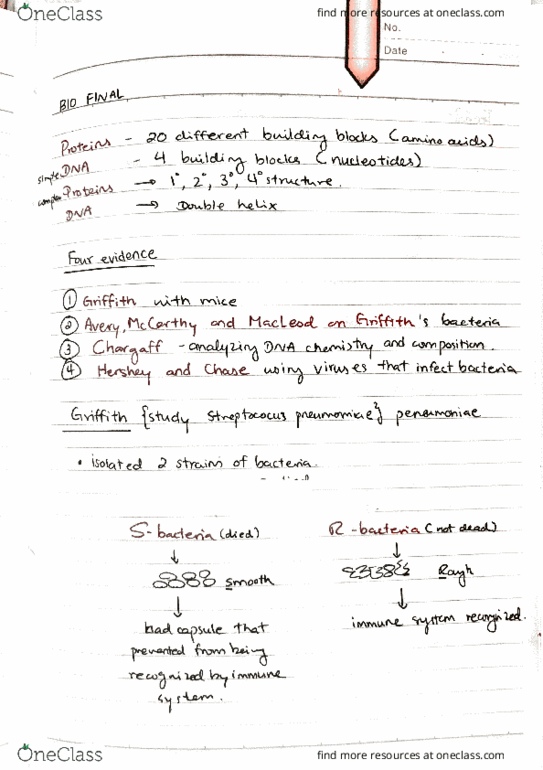 OneClass
find more resources at oneclass.com
No.
Date
BIO FINAL
Proteins - 20 different building blocks (amino acids)
simple DNA - 4 building blocks (nucleotides)
complex Proteins → 1°, 2°, 3°, 4° structure.
DNA → Double helix
Four evidence
① Griffith with mice
② Avery, McCarthy and MacLeod on Griffith's bacteria
③ Chargaff - analyzing DNA chemistry and composition.
④ Hershey and Chase using viruses that infect bacteria
Griffith {study Streptococus pneumoniae?} peneumoniae
• isolated 2 strains of bacteria.
S-bacteria (died)
R-bacteria (not dead)
↓
↓
Smooth
Rough
↓
↓
had capsule that
immune system recognized.
prevented from being
recognized by immune
system.
OneClass
find more resources at oneclass.com